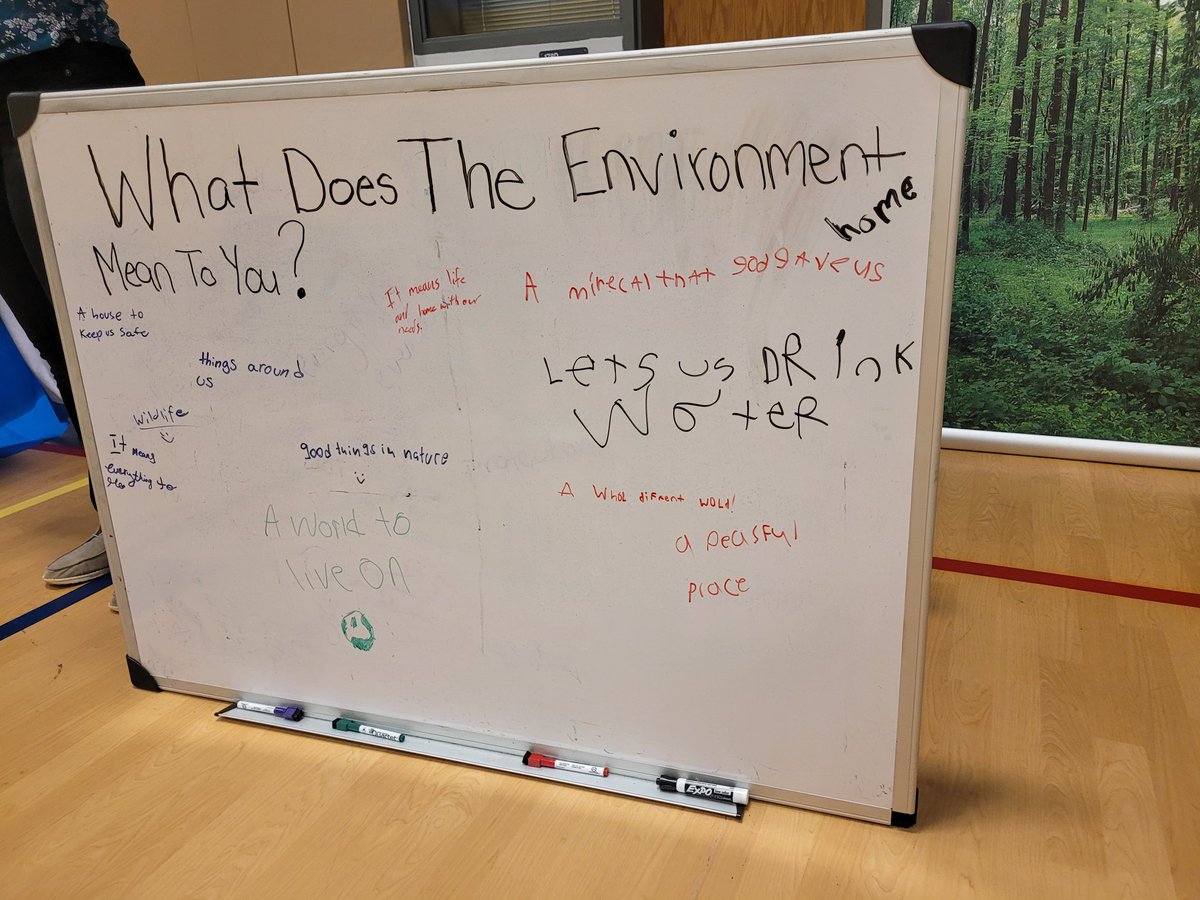 What Does The Environment
Mean To You?
home
A house to
Keep us safe
It means life
and home with our
needs.
A mirecal that god gave us
things around
us
Lets us DRINK
WateR
Wildlife
It means
everything to
Me
good things in nature
A World to
live on
A Whol difirent world!
a peasful
place
EXPO